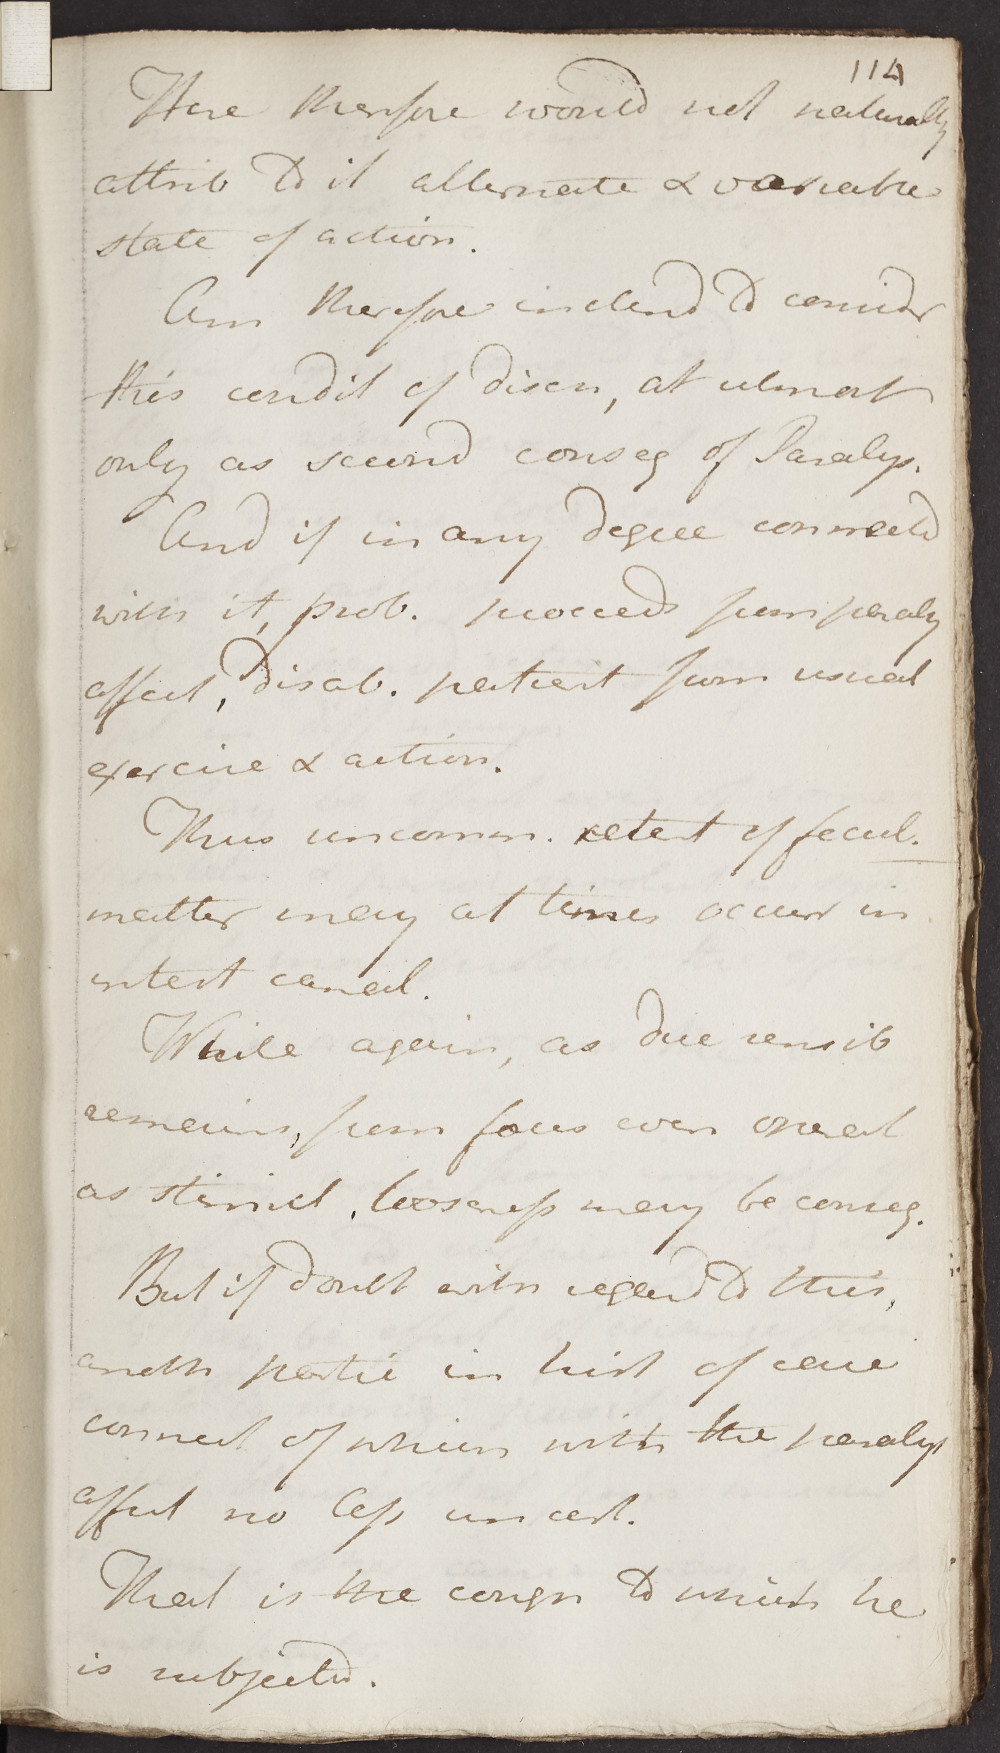 114
Here therefore would not naturally
attrib to it alternate & variable
state of action.
Am therefore inclend to consider
this condit of disease, at utmost
only as second conseq of Paralys.
And if in any degree connectd
with it, prob. proceeds from paraly
affect, disab. patient from usual
exercise & action.
Thus uncomm. retent of fecul.
matter may at times occur in
intest canal.
While again, as due sensib
remains, from foces even operat
as stimul, looseness may be conseq.
But if doubt with regard to this,
anoth partic in hist of case
connect of which with the paralys
affect no less uncert.
That is the cough to which he
is subjectd.